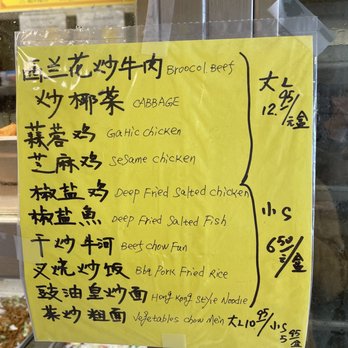 西兰花炒牛肉 Broocol.Beef
炒椰菜 CABBAGE
蒜蓉鸡 GaHic Chicken
芝麻鸡 SeSame chicken
椒盐鸡 Deep Fried Salted chicken
椒盐魚 Deep Fried Salted Fish
干炒牛河 Beef Chow Fun
叉烧炒饭 Bbq Pork Fried Rice
豉油皇炒面 Hong Kong Style Noodle
菜炒粗面 Vegetables chow mein 大L10.95/小S 5.95盒
大L
12.95/元盒
小S
6.50/元盒